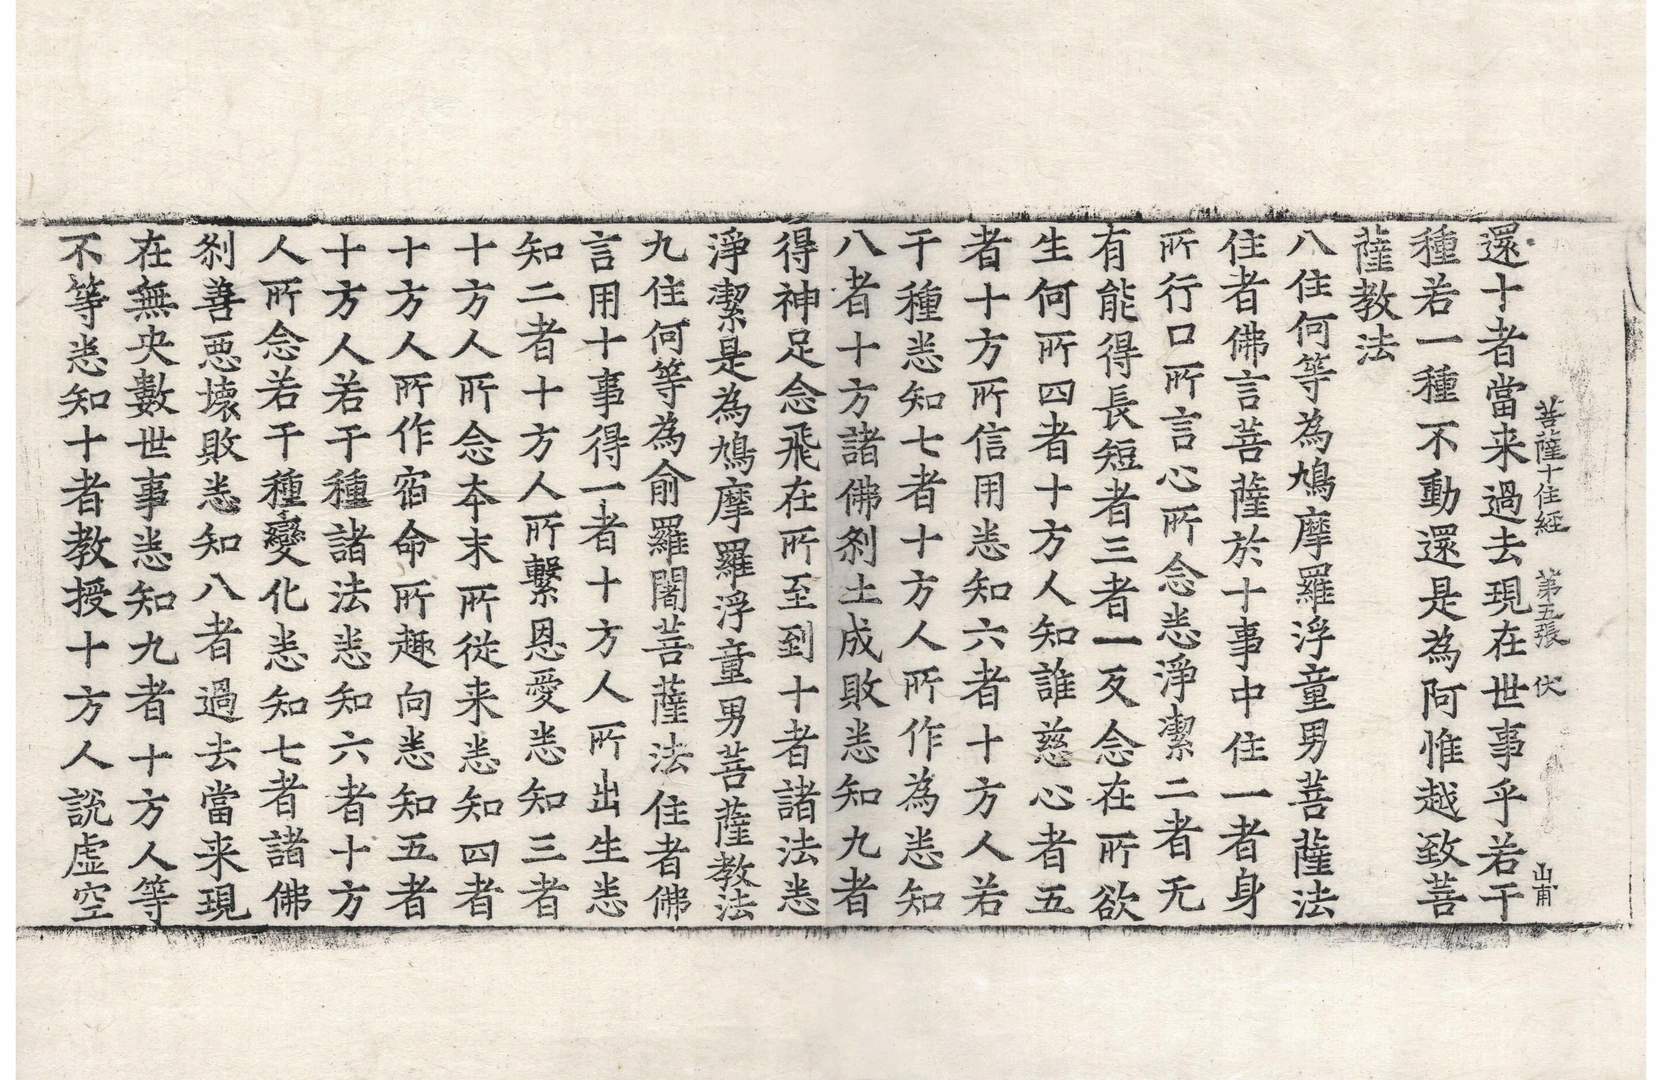 菩薩十住經　第五張　伏
山甫
還十者當来過去現在世事乎若干
種若一種不動還是為阿惟越致菩
薩教法
八住何等為鳩摩羅浮童男菩薩法
住者佛言菩薩於十事中住一者身
所行口所言心所念悉淨潔二者无
有能得長短者三者一反念在所欲
生何所四者十方人知誰慈心者五
者十方所信用悉知六者十方人若
干種悉知七者十方人所作為悉知
八者十方諸佛刹土成敗悉知九者
得神足念飛在所至到十者諸法悉
淨潔是為鳩摩羅浮童男菩薩教法
九住何等為俞羅闍菩薩法住者佛
言用十事得一者十方人所出生悉
知二者十方人所繫恩愛悉知三者
十方人所念夲末所從来悉知四者
十方人所作宿命所趣向悉知五者
十方人若干種諸法悉知六者十方
人所念若干種變化悉知七者諸佛
刹善惡壞敗悉知八者過去當来現
在無央數世事悉知九者十方人等
不等悉知十者教授十方人說虛空